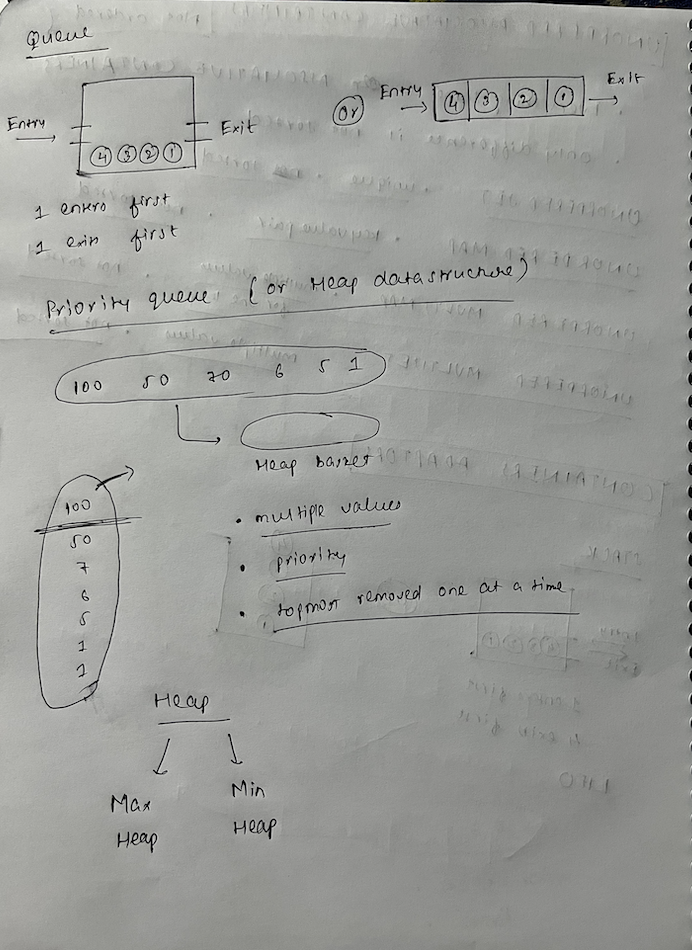 Queue
Entry
Exit
4 3 2 1
Or
Entry
4 3 2 1
Exit
1 enters first
1 exits first
Priority queue (or Heap datastructure)
100 50 70 6 5 1
Heap basket
100
50
7
6
5
1
1
• multiple values
• priority
• topmost removed one at a time
Heap
Max Heap
Min Heap